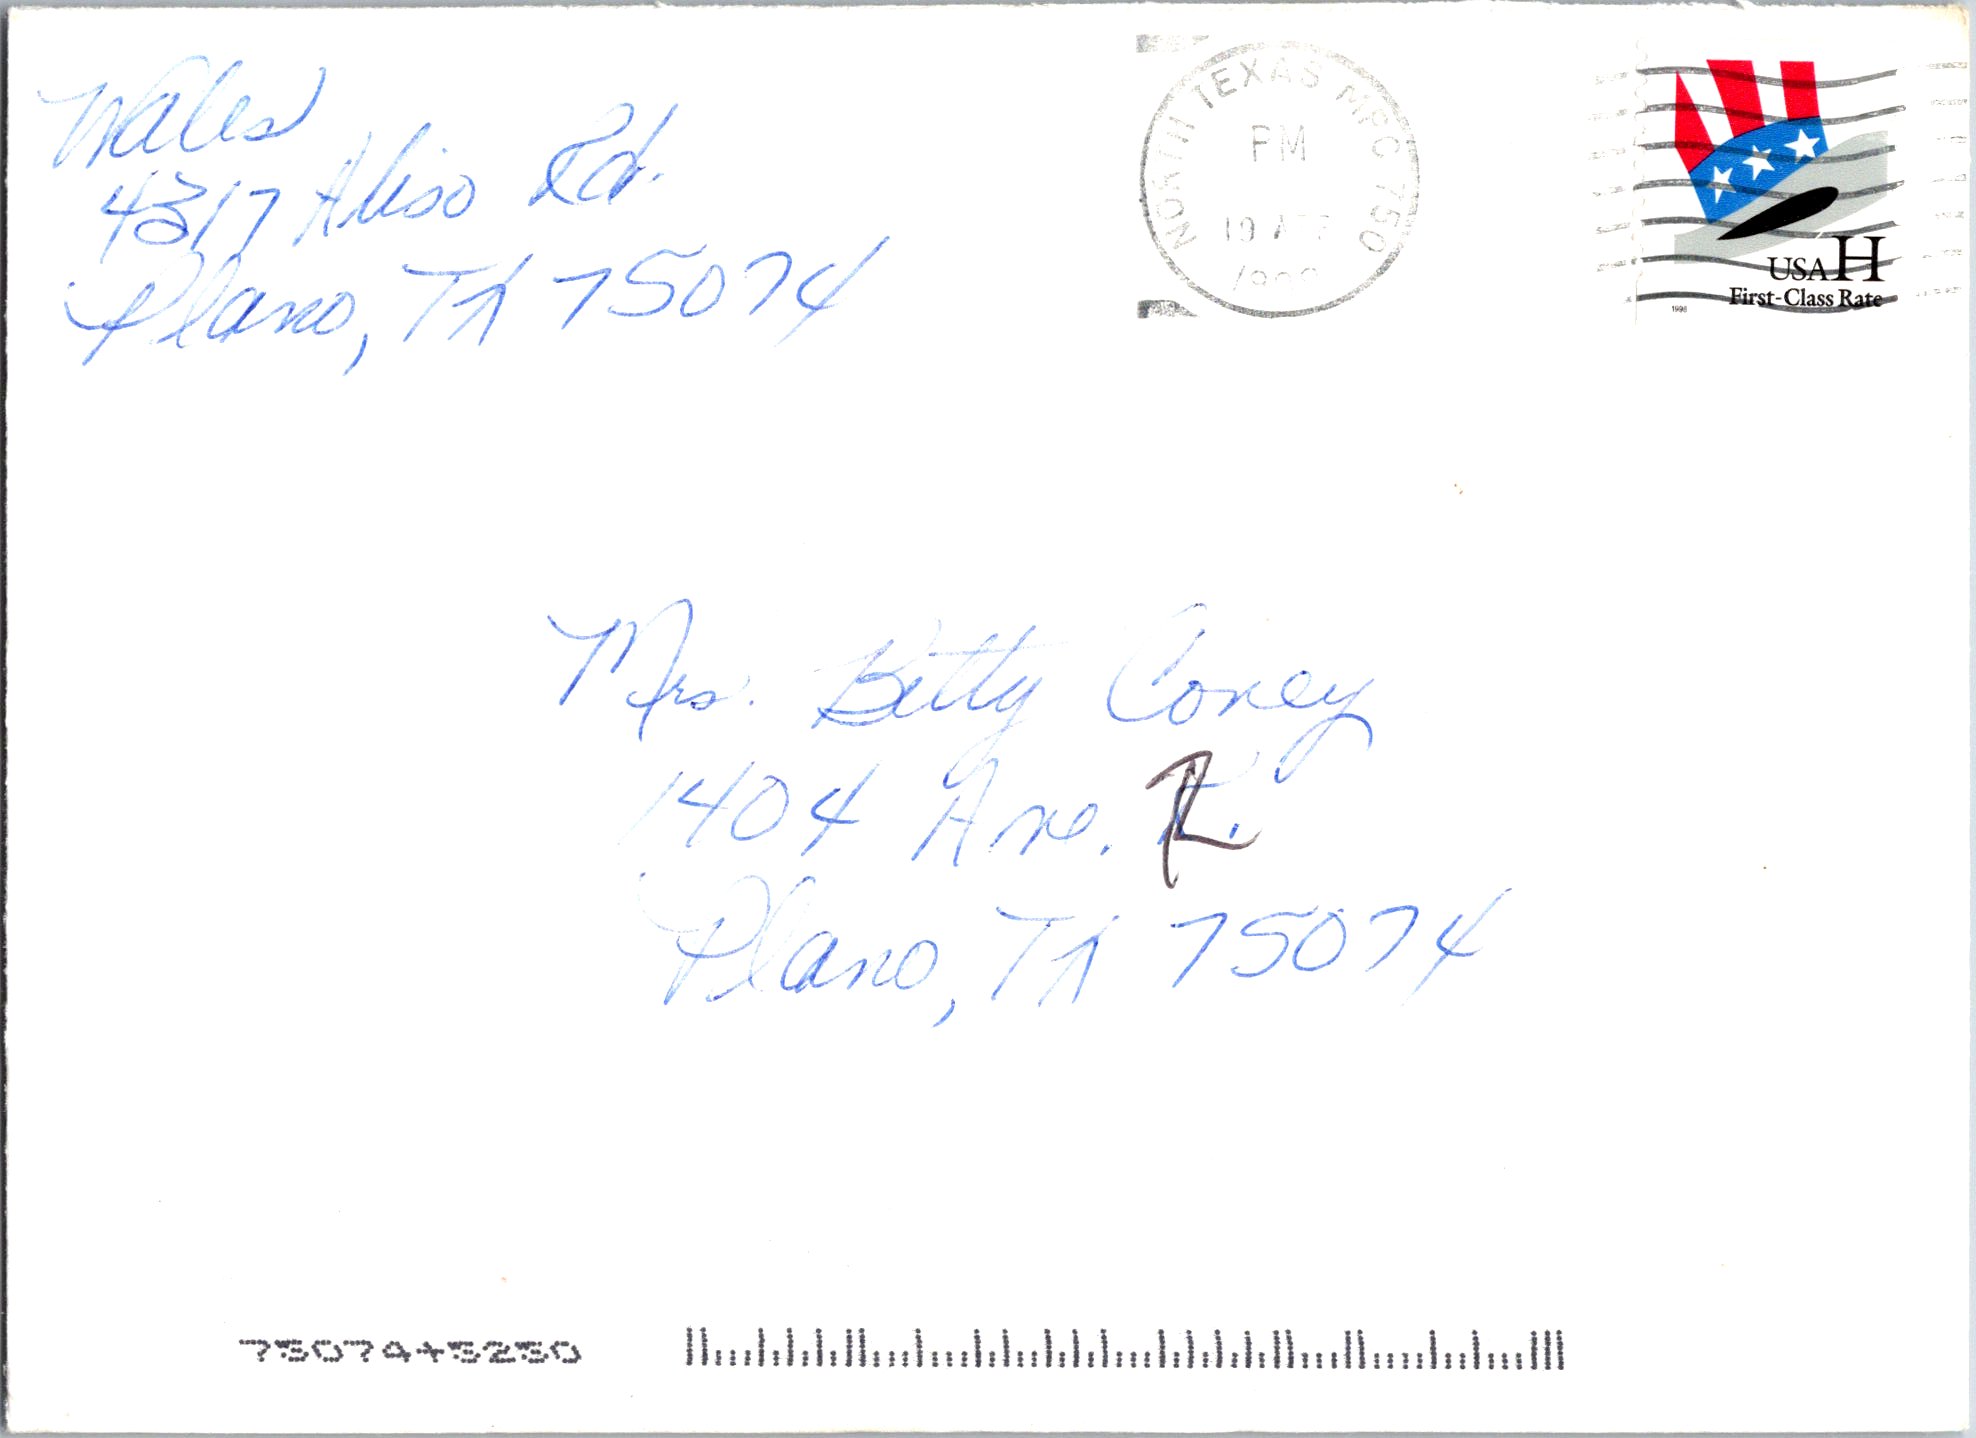 Wales
4317 Aliso Rd.
Plano, TX 75074
NORTH TEXAS MPC 750
PM
19
USA H
First-Class Rate
1998
Mrs. Betty Coney
1404 Ave. R.
Plano, TX 75074
75074+5250